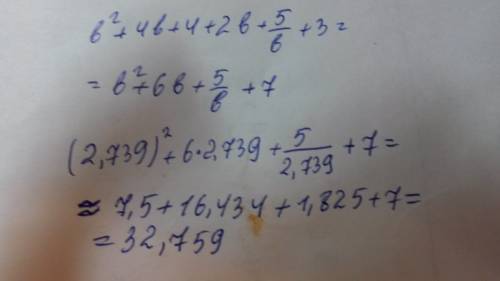 b² + 4b + 4 + 2b + 5/b + 3 =
= b² + 6b + 5/b + 7
(2,739)² + 6·2,739 + 5/2,739 + 7 =
≈ 7,5 + 16,434 + 1,825 + 7 =
= 32,759